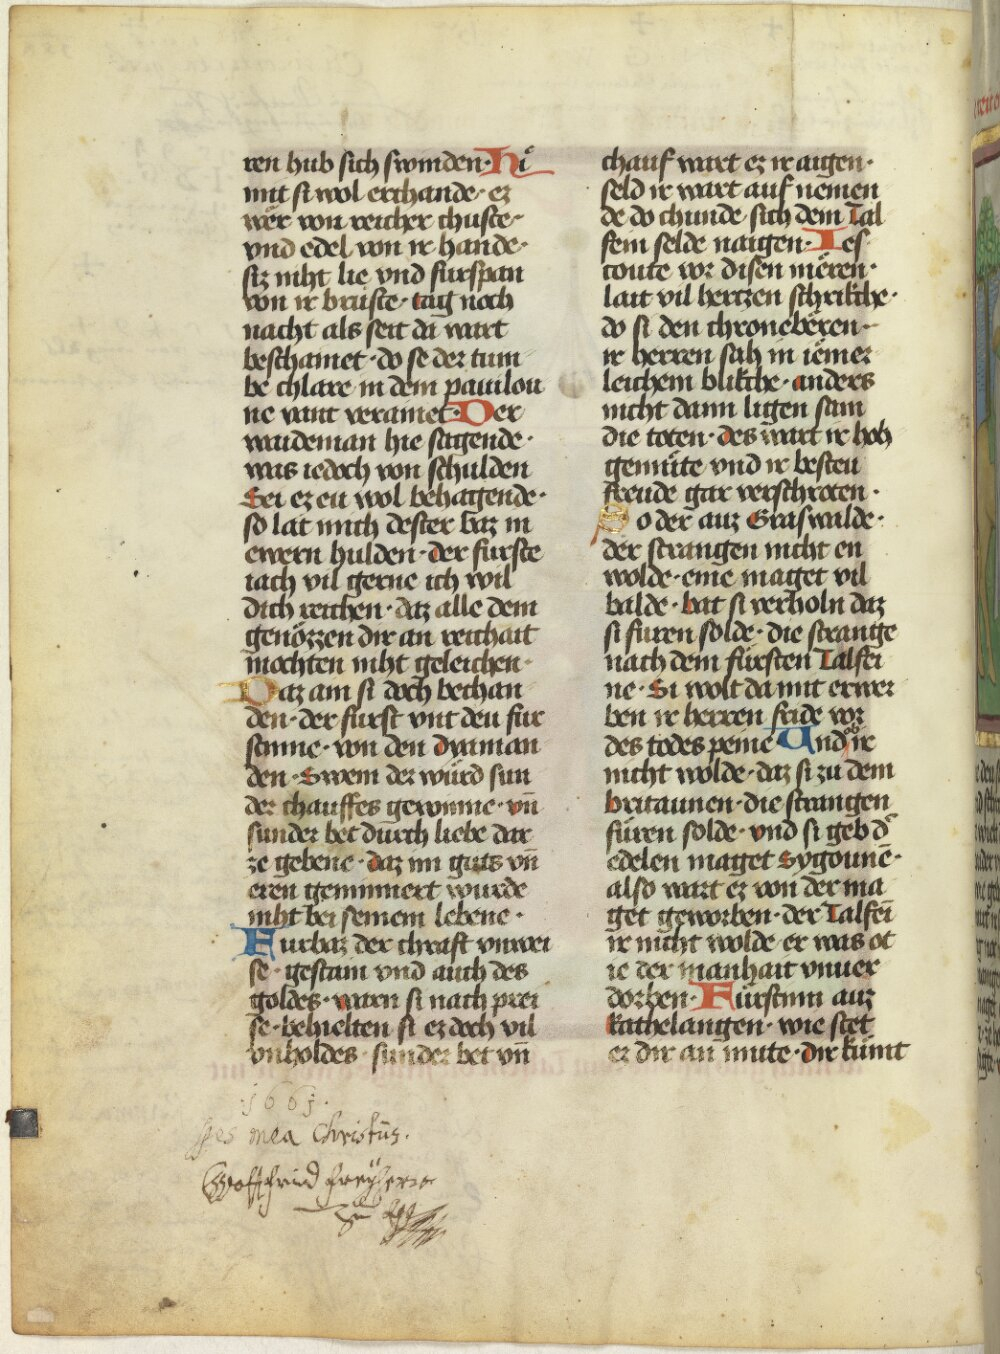 ren hub sich swinden · Hi
mit si wol erchande · ez
wër von reicher chuste ·
vnd edel von ir hande ·
siz niht lie vnd furspan
von ir bruste · tag noch
nacht als seit di wart
beschamet · do se der tum
be chlare in dem pauilou
ne vant veramet · Der
waideman hie sagende ·
was iedoch von schulden
Sei ez eu wol behagende ·
so lat mich dester baz in
ewern hulden · der furste
iach vil gerne ich wil
dich reichen · daz alle dem
genözzen dir an reichait
mochten niht geleichen ·
Daz am si doch bechan
den · der furst vnt deu fur
stinne · von den dyaman
den · Swem der würd sun
der chauffes gewinne · vn̄
sunder bet durch liebe dar
ze gebene · daz im guts vn̄
eren geminnert wurde
niht bei seinem lebene ·
Furbaz der chraft vnwei
se · gestain vnd auch des
goldes · warn si nach prei
se · behielten si ez doch vil
vnholdes · sunder bet vn̄
chauf wart ez ir aigen ·
seld ir wart auf nemen
de do chunde sich dem Tal
fein selde naigen · Tes
toute vor disen mëren ·
lait vil hertzen schrikche ·
do si den chronebëren ·
ir herren sah in iëmer
leichem blikche · anders
nicht dann ligen sam
die toten · des wart ir hoh
gemüte vnd ir besteu
freude gar verschroten ·
So der auz Graswalde ·
der strangen nicht en
wolde · eine maget vil
balde · bat si verholn daz
si füren solde · die strange
nach dem fürsten Talfei
ne · Si wolt da mit erwer
ben ir herren fride vor
des todes peine Vnd ob ir
nicht wolde · daz si zu dem
britaunen · die strangen
füren solde · vnd si geb d̕
edelen maget Sygounē ·
also wart ez von der ma
get geworben · der Talfei
ir nicht wolde er was ot
ie der manhait vnuer
dorben · Fürstinn auz
kathelangen · wie stet
ez dir an mute · dir kümt
1661.
Spes mea Christus.
Wolffhrid freÿherr
zu